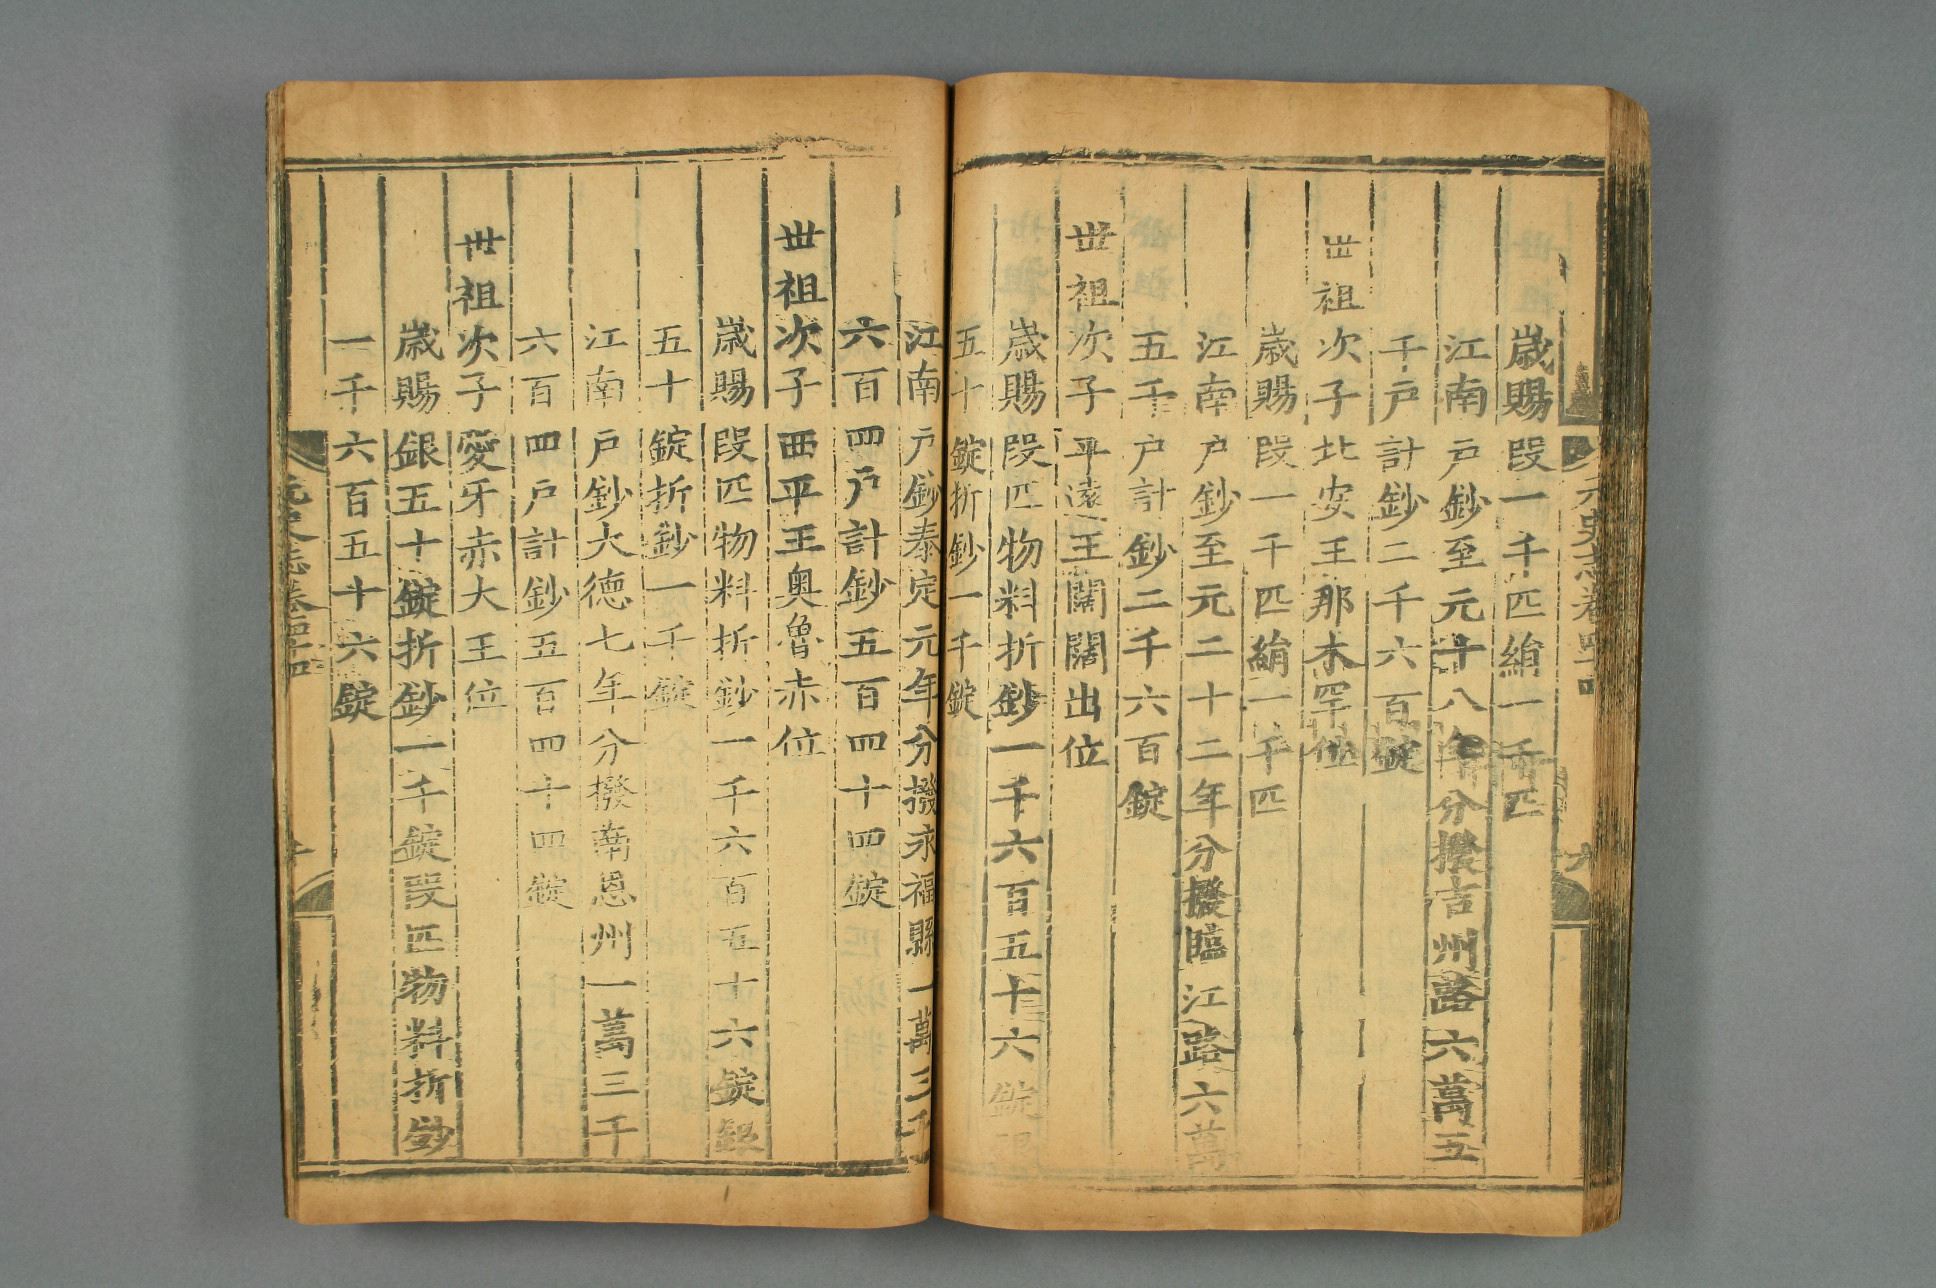 元史志卷四十四
歲賜段一千匹絹一千匹
江南戶鈔至元十八年分撥吉州路六萬五
千戶計鈔二千六百錠
世祖次子北安王那木罕位
歲賜段一千匹絹一千匹
江南戶鈔至元二十二年分撥臨江路六萬
五千戶計鈔二千六百錠
世祖次子平遠王闊闊出位
歲賜段匹物料折鈔一千六百五十六錠銀
五十錠折鈔一千錠
江南戶鈔泰定元年分撥永福縣一萬三千
六百四戶計鈔五百四十四錠
世祖次子西平王奧魯赤位
歲賜段匹物料折鈔一千六百五十六錠銀
五十錠折鈔一千錠
江南戶鈔大德七年分撥南恩州一萬三千
六百四戶計鈔五百四十四錠
世祖次子愛牙赤大王位
歲賜銀五十錠折鈔一千錠段匹物料折鈔
一千六百五十六錠
元史志卷四十四
十